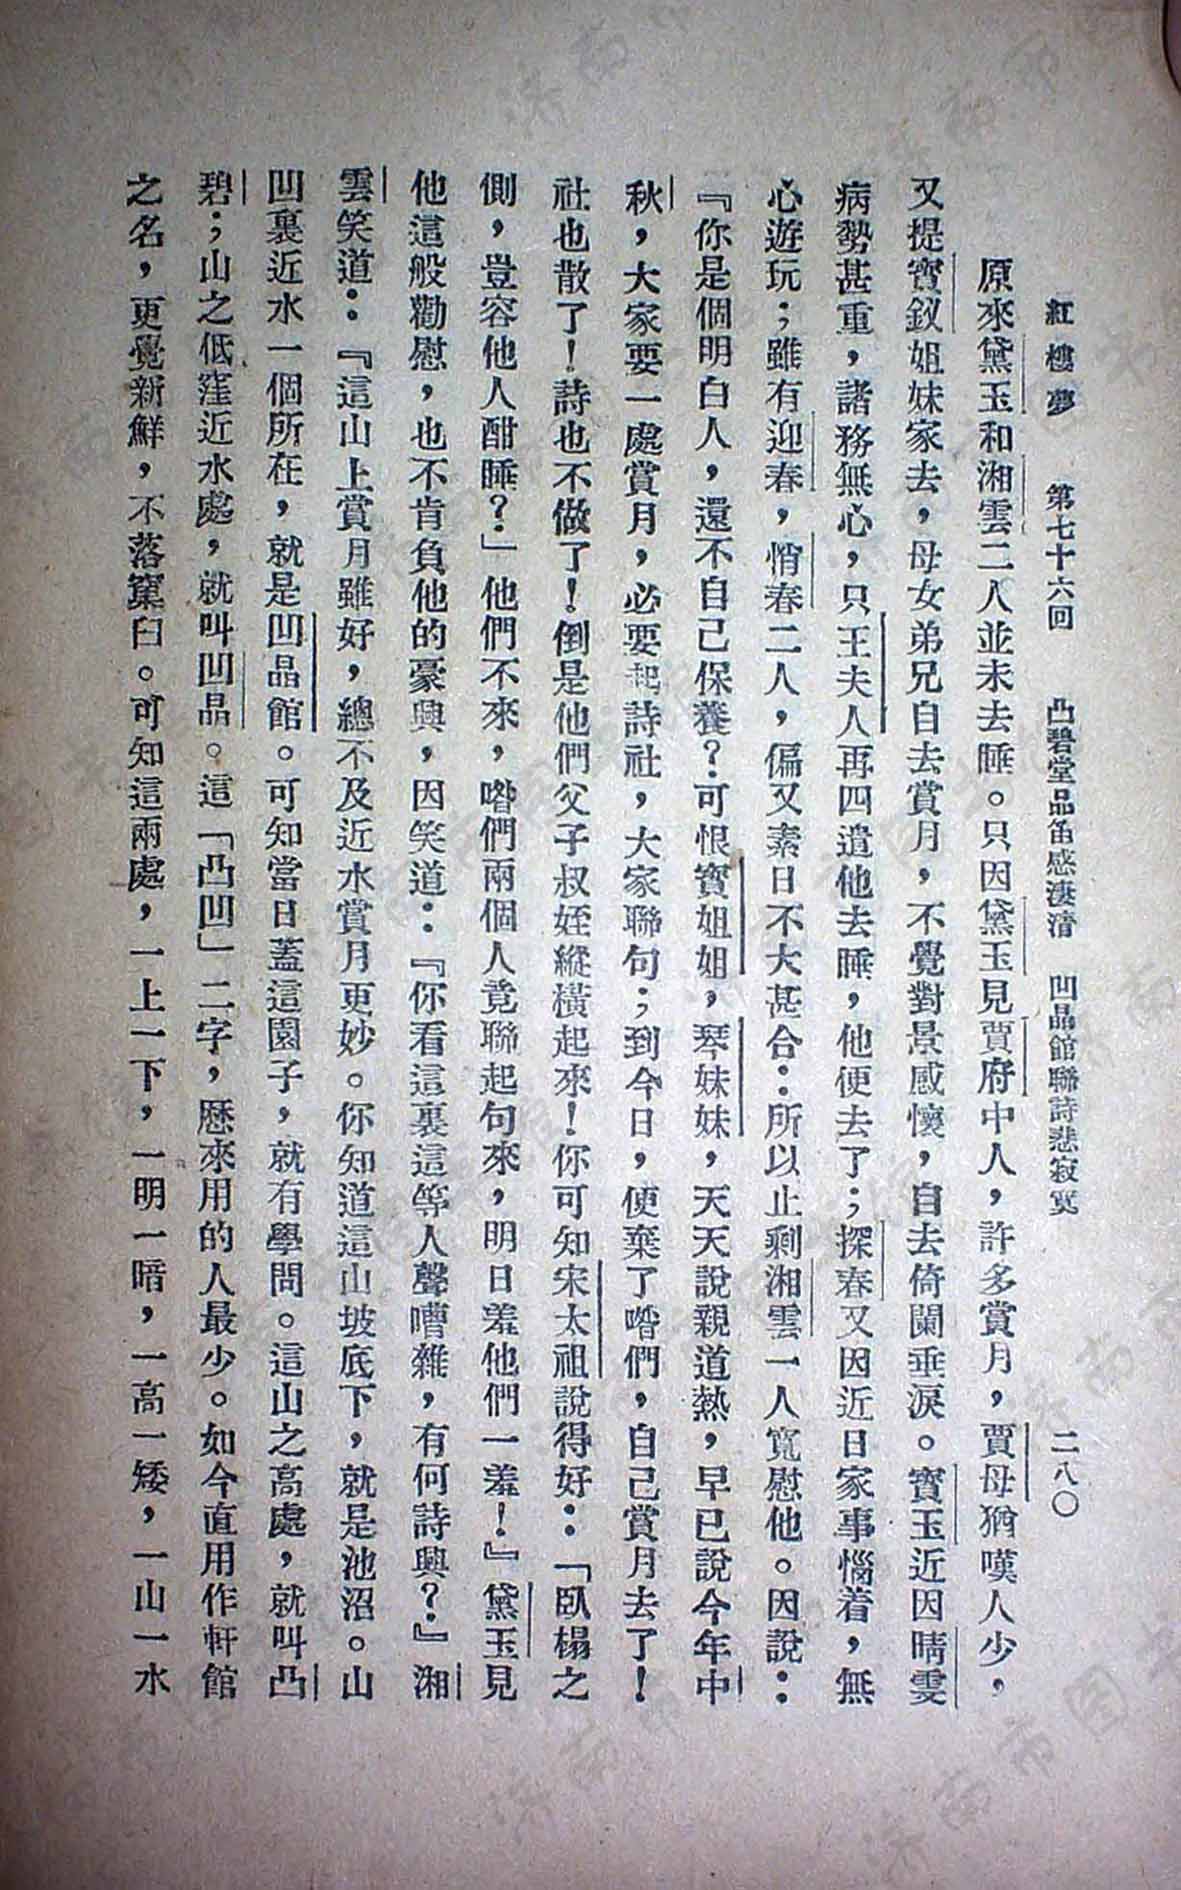 紅樓夢　第七十六回　凸碧堂品笛感凄清　凹晶館聯詩悲寂寞　二八〇
原來黛玉和湘雲二人並未去睡。只因黛玉見賈府中人，許多賞月，賈母猶嘆人少，
又提寶釵姐妹家去，母女弟兄自去賞月，不覺對景感懷，自去倚闌垂淚。寶玉近因晴雯
病勢甚重，諸務無心，只王夫人再四遣他去睡，他便去了；探春又因近日家事惱着，無
心遊玩；雖有迎春，惜春二人，偏又素日不大甚合：所以止剩湘雲一人寬慰他。因說：
『你是個明白人，還不自己保養？可恨寶姐姐，琴妹妹，天天說親道熱，早已說今年中
秋，大家要一處賞月，必要起詩社，大家聯句；到今日，便棄了喒們，自己賞月去了！
社也散了！詩也不做了！倒是他們父子叔姪縱橫起來！你可知宋太祖說得好：「臥榻之
側，豈容他人酣睡？」他們不來，喒們兩個人竟聯起句來，明日羞他們一羞！』黛玉見
他這般勸慰，也不肯負他的豪興，因笑道：『你看這裏這等人聲嘈雜，有何詩興？』湘
雲笑道：『這山上賞月雖好，總不及近水賞月更妙。你知道這山坡底下，就是池沼。山
凹裏近水一個所在，就是凹晶館。可知當日蓋這園子，就有學問。這山之高處，就叫凸
碧；山之低窪近水處，就叫凹晶。這「凸凹」二字，歷來用的人最少。如今直用作軒館
之名，更覺新鮮，不落窠臼。可知這兩處，一上一下，一明一暗，一高一矮，一山一水